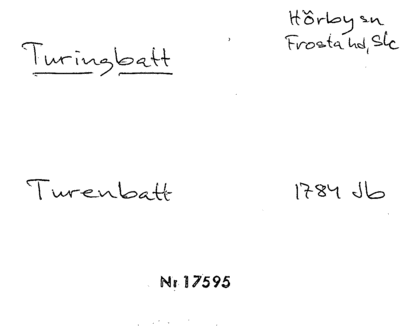 Hörby sn
Turingbatt Frosta hd, Sk
Turenbatt 1784 Jb
Nr 17595